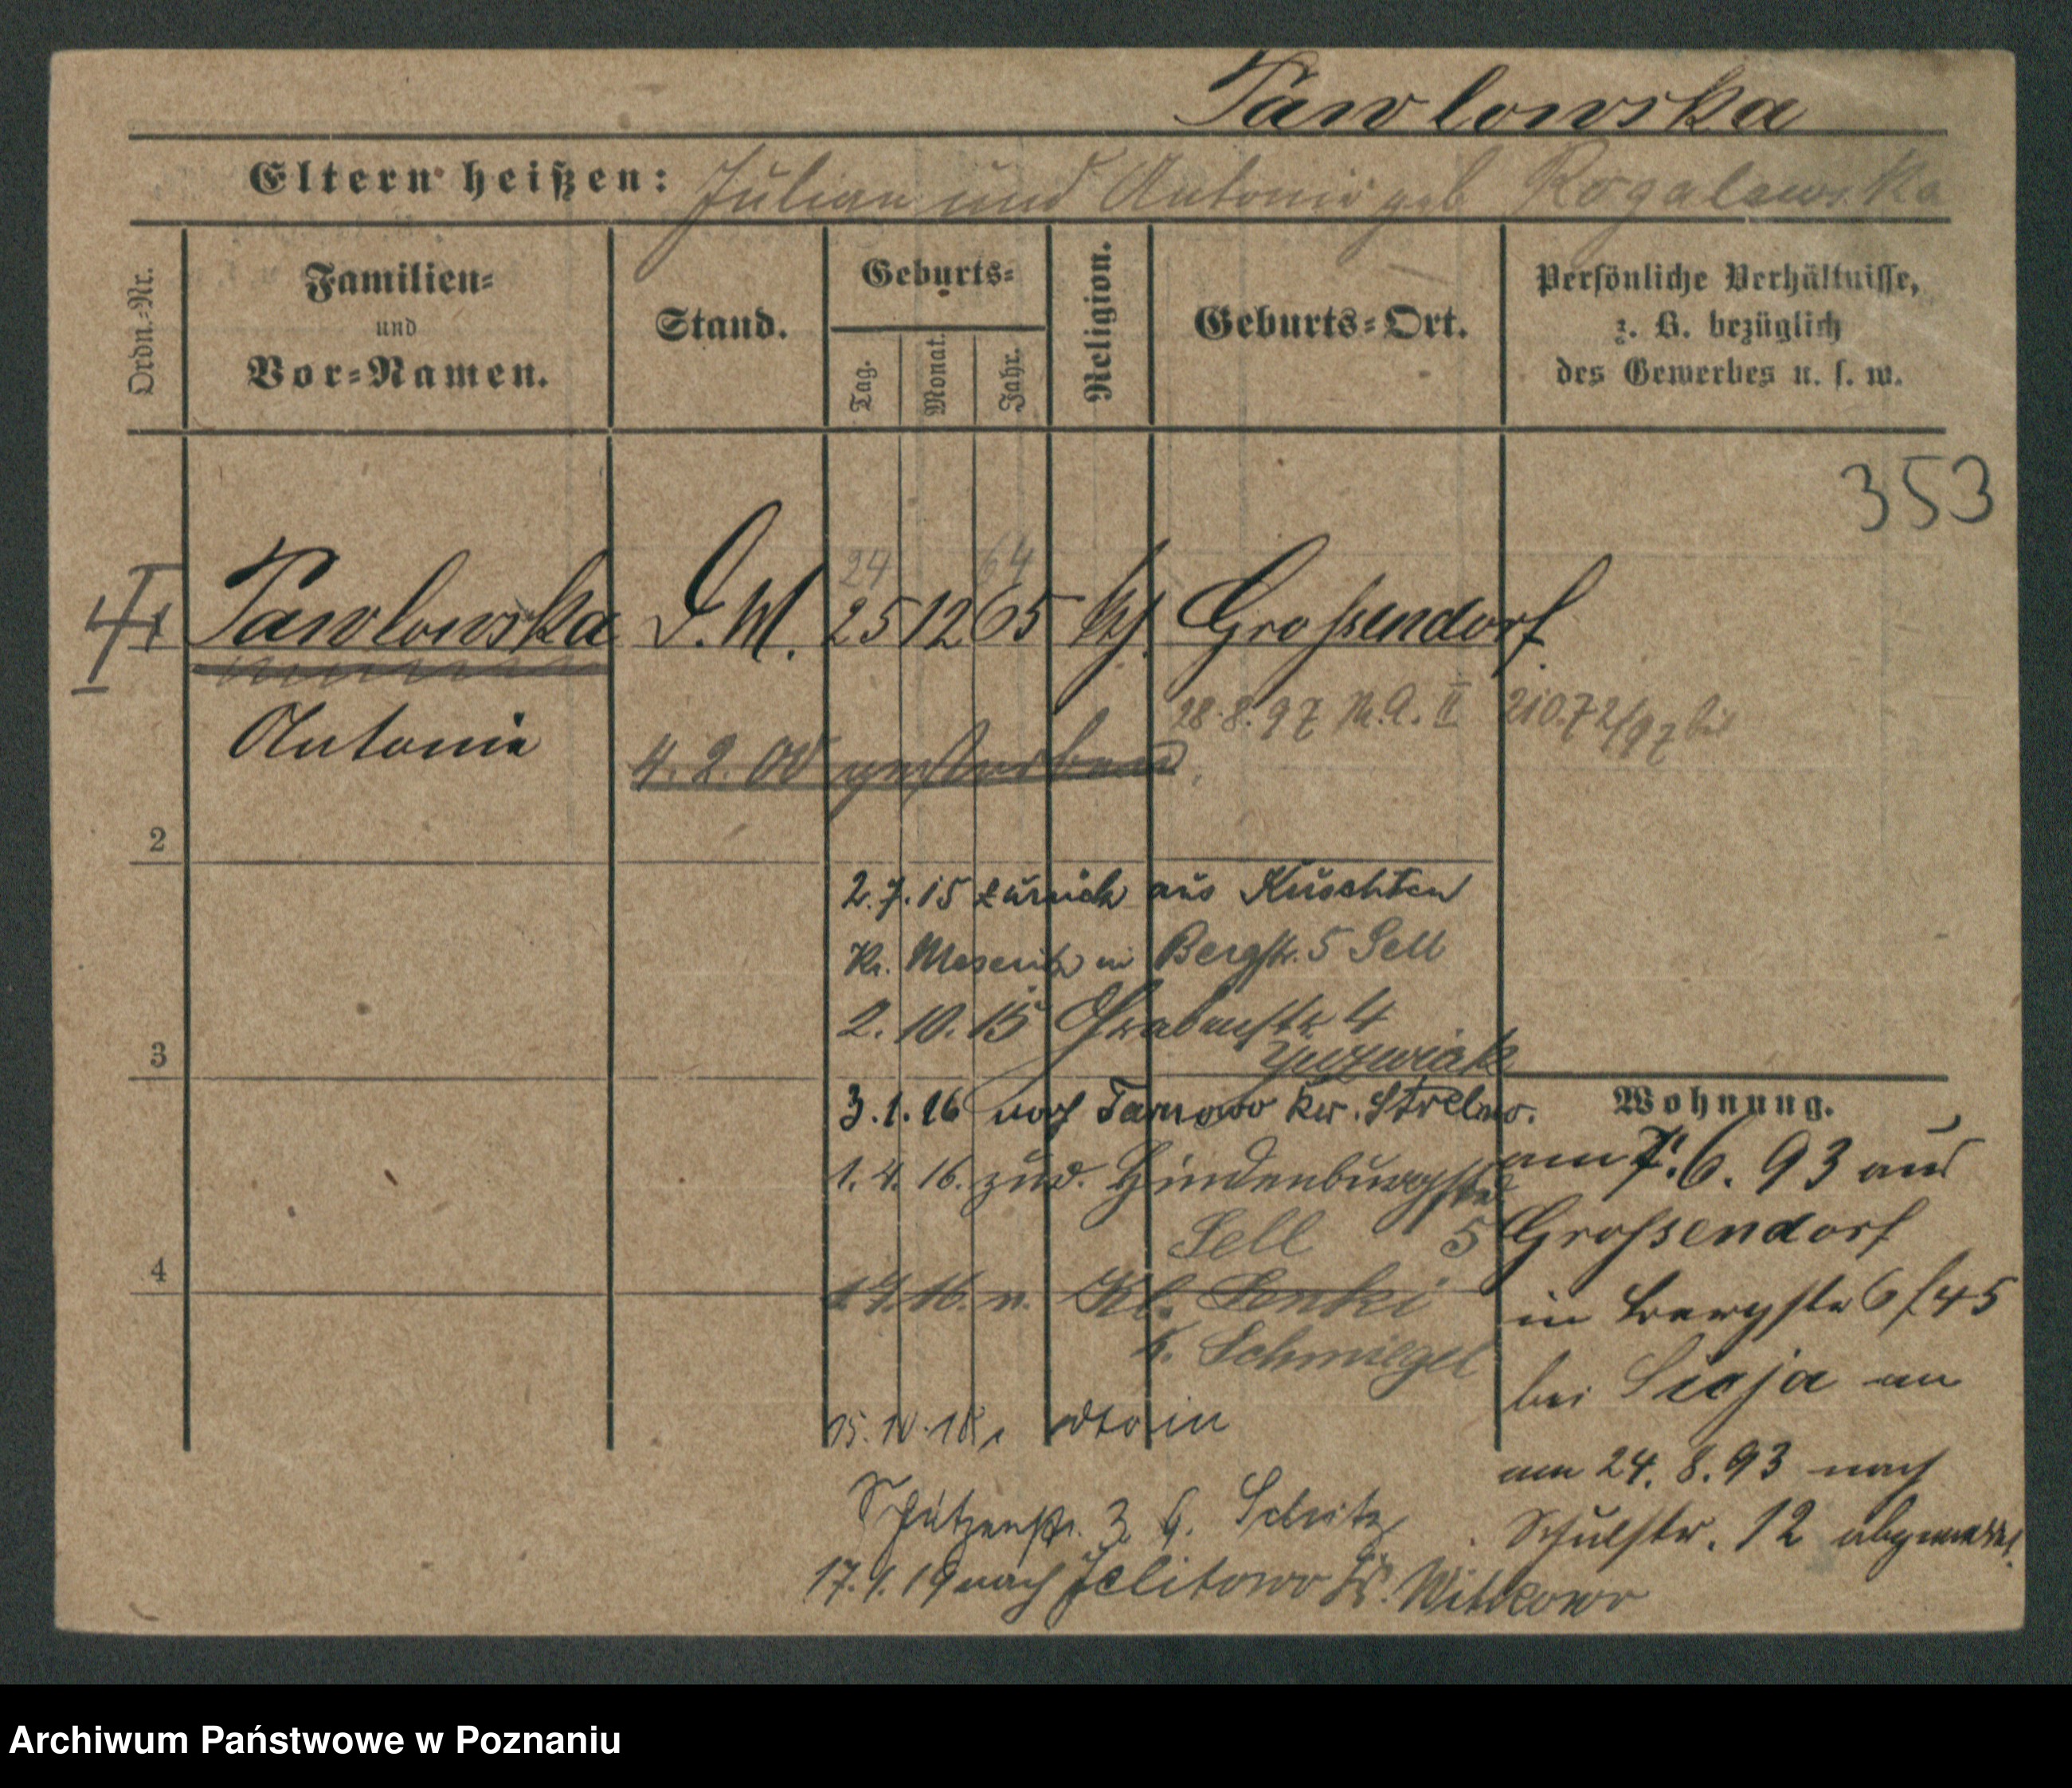 Pawlowska
Eltern heißen: Julian und Antonie geb Rogalewska
Ordn.-Nr.
Familien-
und
Vor-Namen.
Stand.
Geburts-
Tag.
Monat.
Jahr.
Religion.
Geburts-Ort.
Persönliche Verhältnisse,
z. B. bezüglich
des Gewerbes u. s. w.
353
24 64
1 Pawlowska D.M. 25 12 65 kɧ. Grossendorf
Antonie
28.8.97 II 21072/97
4.2.00 gestorben
2
2.7.15 zurück aus Kuschten
Kr. Meseritz in Bergstr. 5 Sell
2.10.15 Grabenstr 4
3
3.1.16 nach Tarnowo Kr. Strelno.
1.4.16. zur. Hindenburgstr
Sell 5
4
n. Kl. Lenki
K. Schmiegel
15.10.18, in
Schützenstr. 3 b. Schritz
17.1.19 nach Jelitowo Ks. Witkowo
Wohnung.
am 7.6.93 aus
Grossendorf
in Bergstr 6/45
bei an
am 24.8.93 nach
Schulstr. 12 abgemeldet.
Archiwum Państwowe w Poznaniu